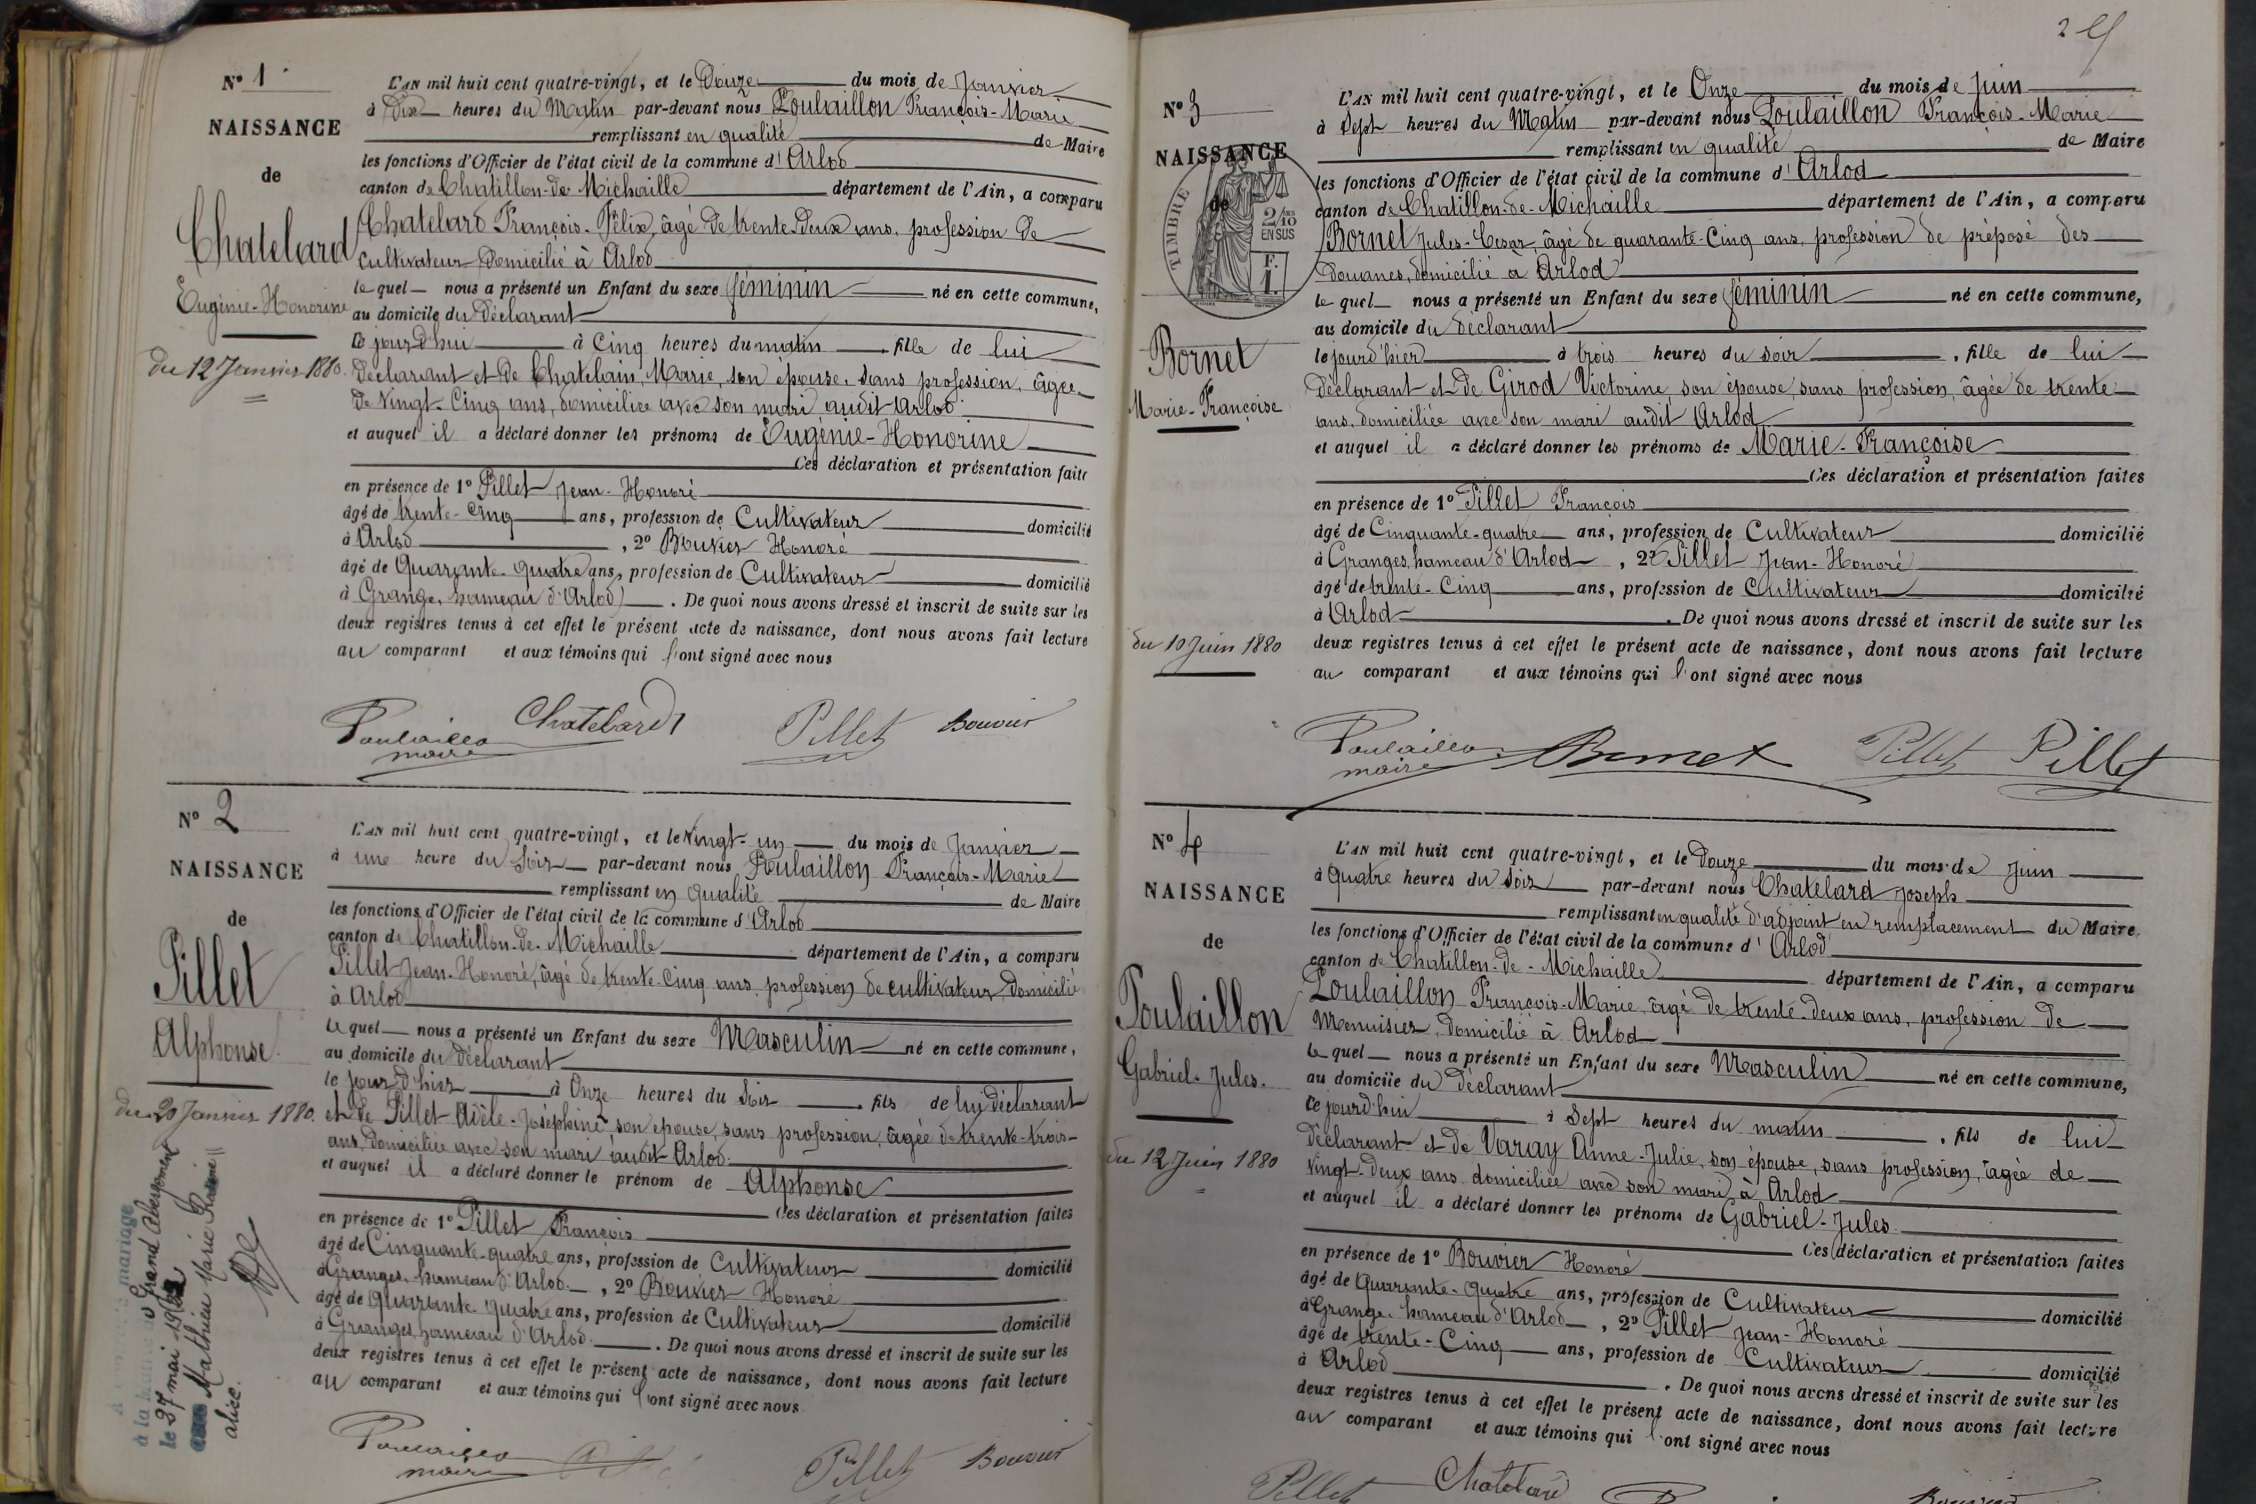 N° 1
NAISSANCE
de
Chatelard
Eugénie-Honorine
du 12 Janvier 1880.
L'AN mil huit cent quatre-vingt, et le Douze du mois de Janvier
à Dix heures du Matin par-devant nous Poulaillon François-Marie
remplissant en qualité de Maire
les fonctions d'Officier de l'état civil de la commune d'Arlod
canton de Chatillon-de-Michaille département de l'Ain, a comparu
Chatelard François-Félix, âgé de trente-deux ans, profession de
cultivateur domicilié à Arlod
lequel nous a présenté un Enfant du sexe féminin né en cette commune,
au domicile du Déclarant
ce jourd'hui à Cinq heures du matin fille de lui
déclarant et de Chatelain, Marie, son épouse, sans profession, âgée
de vingt-cinq ans, domiciliée avec son mari audit Arlod
et auquel il a déclaré donner les prénoms de Eugénie-Honorine
Ces déclaration et présentation faites
en présence de 1° Pillet Jean-Honoré
âgé de trente-cinq ans, profession de Cultivateur domicilié
à Arlod, 2° Bouvier Honoré
âgé de Quarante-quatre ans, profession de Cultivateur domicilié
à Grange, hameau d'Arlod. De quoi nous avons dressé et inscrit de suite sur les
deux registres tenus à cet effet le présent acte de naissance, dont nous avons fait lecture
au comparant et aux témoins qui l'ont signé avec nous
Poulaillo Chatelard Pillet Bouvier
maire
N° 2
NAISSANCE
de
Pillet
Alphonse.
du 20 Janvier 1880.
mariage
à la
le 27 mai
Mathieu Marie
alice.
L'AN mil huit cent quatre-vingt, et le vingt-un du mois de Janvier
à une heure du Soir par-devant nous Poulaillon François-Marie
remplissant en qualité de Maire
les fonctions d'Officier de l'état civil de la commune d'Arlod
canton de Chatillon-de-Michaille département de l'Ain, a comparu
Pillet Jean-Honoré, âgé de trente-cinq ans, profession de cultivateur, domicilié
à Arlod
lequel nous a présenté un Enfant du sexe Masculin né en cette commune,
au domicile du déclarant
le jour d'hier à Onze heures du Soir fils de luy déclarant
et de Pillet Adèle-Joséphine son épouse, sans profession, âgée de trente-trois
ans, domiciliée avec son mari audit Arlod.
et auquel il a déclaré donner le prénom de Alphonse
Ces déclaration et présentation faites
en présence de 1° Pillet François
âgé de Cinquante-quatre ans, profession de Cultivateur domicilié
à Granges, hameau d'Arlod., 2° Bouvier Honoré
âgé de quarante-quatre ans, profession de Cultivateur domicilié
à Granges, hameau d'Arlod. De quoi nous avons dressé et inscrit de suite sur les
deux registres tenus à cet effet le présent acte de naissance, dont nous avons fait lecture
au comparant et aux témoins qui l'ont signé avec nous
Poulaillo Pillet Bouvier
maire
N° 3
NAISSANCE
de
TIMBRE
2/10
EN SUS
F.
1.
Bornet
Marie-Françoise
du 10 Juin 1880
L'AN mil huit cent quatre-vingt, et le Onze du mois de Juin
à Sept heures du Matin par-devant nous Poulaillon François-Marie
remplissant en qualité de Maire
les fonctions d'Officier de l'état civil de la commune d'Arlod
canton de Chatillon-de-Michaille département de l'Ain, a comparu
Bornet Jules-César, âgé de quarante-cinq ans, profession de préposé des
Douanes, domicilié à Arlod
lequel nous a présenté un Enfant du sexe féminin né en cette commune,
au domicile du déclarant
le jour d'hier à trois heures du soir, fille de lui
déclarant et de Girod Victorine, son épouse, sans profession, âgée de trente
ans, domiciliée avec son mari audit Arlod
et auquel il a déclaré donner les prénoms de Marie-Françoise
Ces déclaration et présentation faites
en présence de 1° Pillet François
âgé de Cinquante-quatre ans, profession de Cultivateur domicilié
à Granges, hameau d'Arlod, 2° Pillet Jean-Honoré
âgé de trente-cinq ans, profession de Cultivateur domicilié
à Arlod. De quoi nous avons dressé et inscrit de suite sur les
deux registres tenus à cet effet le présent acte de naissance, dont nous avons fait lecture
au comparant et aux témoins qui l'ont signé avec nous
Poulaillo Bornet Pillet Pillet
maire
N° 4
NAISSANCE
de
Poulaillon
Gabriel-Jules.
du 12 Juin 1880
L'AN mil huit cent quatre-vingt, et le Douze du mois de Juin
à quatre heures du Soir par-devant nous Chatelard Joseph
remplissant en qualité d'adjoint en remplacement du Maire,
les fonctions d'Officier de l'état civil de la commune d'Arlod
canton de Chatillon-de-Michaille département de l'Ain, a comparu
Poulaillon François-Marie, âgé de trente-deux ans, profession de
Menuisier, domicilié à Arlod
lequel nous a présenté un Enfant du sexe Masculin né en cette commune,
au domicile du déclarant
ce jourd'hui à Sept heures du matin, fils de lui
déclarant et de Varay Anne-Julie, son épouse, sans profession, âgée de
vingt-deux ans domiciliée avec son mari à Arlod
et auquel il a déclaré donner les prénoms de Gabriel-Jules.
Ces déclaration et présentation faites
en présence de 1° Bouvier Honoré
âgé de quarante-quatre ans, profession de Cultivateur domicilié
à Grange, hameau d'Arlod, 2° Pillet Jean-Honoré
âgé de trente-cinq ans, profession de Cultivateur domicilié
à Arlod. De quoi nous avons dressé et inscrit de suite sur les
deux registres tenus à cet effet le présent acte de naissance, dont nous avons fait lecture
au comparant et aux témoins qui l'ont signé avec nous
Pillet Chatelard Bouvier